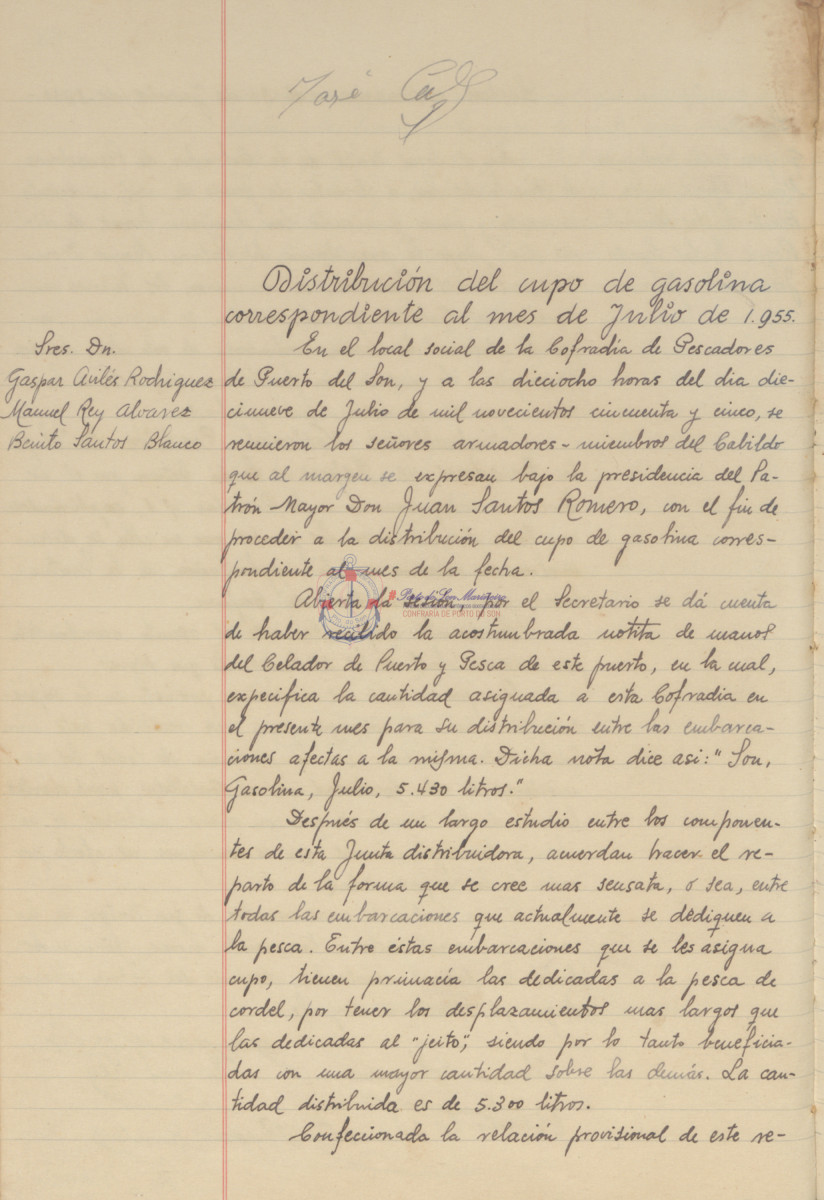 José
Distribución del cupo de gasolina
correspondiente al mes de Julio de 1.955.
Sres. Dn.
Gaspar Avilés Rodriguez
Manuel Rey Alvarez
Benito Santos Blanco
En el local social de la Cofradía de Pescadores
de Puerto del Son, y a las dieciocho horas del dia die-
cinueve de Julio de mil novecientos cincuenta y cinco, se
reunieron los señores armadores - miembros del Cabildo
que al margen se expresan bajo la presidencia del Pa-
trón Mayor Don Juan Santos Romero, con el fin de
proceder a la distribución del cupo de gasolina corres-
pondiente al mes de la fecha.
Abierta la sesión, por el Secretario se dá cuenta
de haber recibido la acostumbrada notita de manos
del Celador de Puerto y Pesca de este puerto, en la cual,
expecifica la cantidad asignada a esta Cofradia en
el presente mes para su distribución entre las embarca-
ciones afectas a la misma. Dicha nota dice asi: "Son,
Gasolina, Julio, 5.430 litros."
Después de un largo estudio entre los componen-
tes de esta Junta distribuidora, acuerdan hacer el re-
parto de la forma que se cree mas sensata, o sea, entre
todas las embarcaciones que actualmente se dediquen a
la pesca. Entre éstas embarcaciones que se les asigna
cupo, tienen primacía las dedicadas a la pesca de
cordel, por tener los desplazamientos mas largos que
las dedicadas al "jeito", siendo por lo tanto beneficia-
das con una mayor cantidad sobre las demás. La can-
tidad distribuida es de 5.300 litros.
Confeccionada la relación provisional de este re-
Porto do Son Mariñeiro
CONFRARIA DE PORTO DO SON